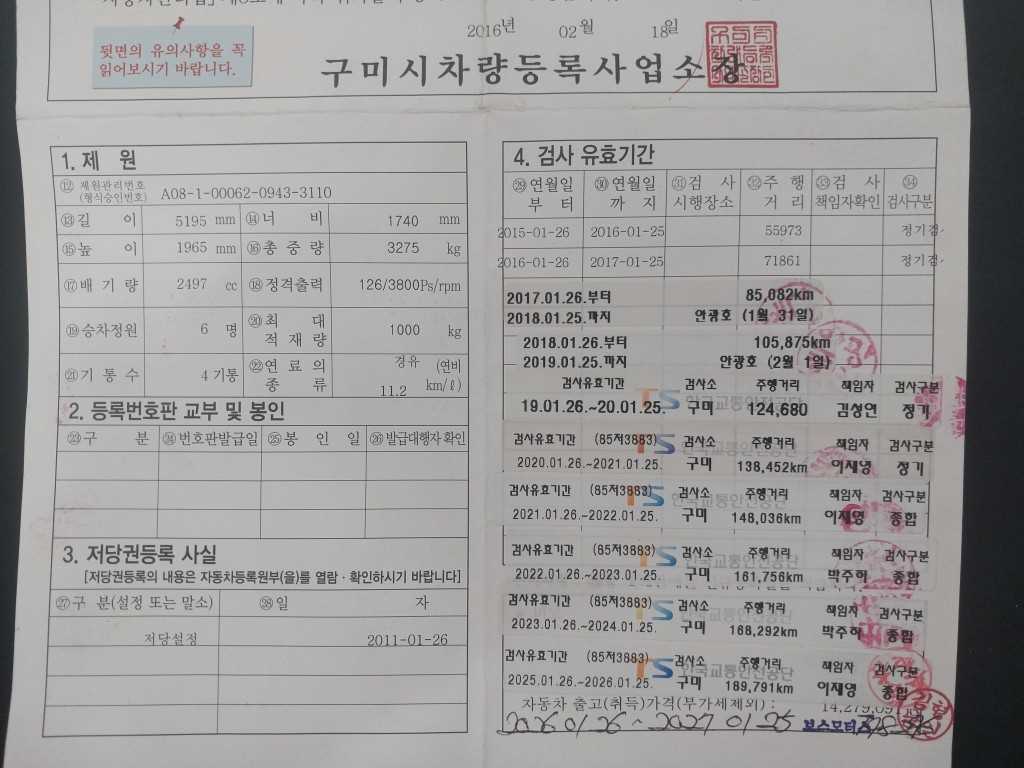 2016년 02월 18일
뒷면의 유의사항을 꼭
읽어보시기 바랍니다.
구미시차량등록사업소장
1. 제 원
⑫ 제원관리번호
(형식승인번호) A08-1-00062-0943-3110
⑬길 이 5195 mm ⑭너 비 1740 mm
⑮높 이 1965 mm ⑯총 중 량 3275 kg
⑰배 기 량 2497 cc ⑱정격출력 126/3800Ps/rpm
⑲승차정원 6 명 ⑳최 대 적 재 량 1000 kg
㉑기 통 수 4 기통 ㉒연 료 의 종 류 경유 (연비 11.2 km/ℓ)
2. 등록번호판 교부 및 봉인
㉓구 분 ㉔번호판발급일 ㉕봉 인 일 ㉖발급대행자확인
3. 저당권등록 사실
[저당권등록의 내용은 자동차등록원부(을)를 열람·확인하시기 바랍니다]
㉗구 분(설정 또는 말소) ㉘일 자
저당설정 2011-01-26
4. 검사 유효기간
㉙연월일 부 터 ㉚연월일 까 지 ㉛검 사 시행장소 ㉜주 행 거 리 ㉝검 사 책임자확인 ㉞검사구분
2015-01-26 2016-01-25 55973 정기검
2016-01-26 2017-01-25 71861 정기검
2017.01.26.부터 85,082km
2018.01.25.까지 안광호 (1월 31일)
2018.01.26.부터 105,875km
2019.01.25.까지 안광호 (2월 1일)
검사유효기간 검사소 주행거리 책임자 검사구분
19.01.26.~20.01.25. 구미 124,680 김성연 정기
검사유효기간 (85저3883) 검사소 주행거리 책임자 검사구분
2020.01.26.~2021.01.25. 구미 138,452km 이재영 정기
검사유효기간 (85저3883) 검사소 주행거리 책임자 검사구분
2021.01.26.~2022.01.25. 구미 148,036km 이재영 종합
검사유효기간 (85저3883) 검사소 주행거리 책임자 검사구분
2022.01.26.~2023.01.25. 구미 161,756km 박주하 종합
검사유효기간 (85저3883) 검사소 주행거리 책임자 검사구분
2023.01.26.~2024.01.25. 구미 168,292km 박주하 종합
검사유효기간 (85저3883) 검사소 주행거리 책임자 검사구분
2025.01.26.~2026.01.25. 구미 189,791km 이재영 종합
자동차 출고(취득)가격(부가세제외) :
2026 01 26 ~ 2027 01 25 보스모터스